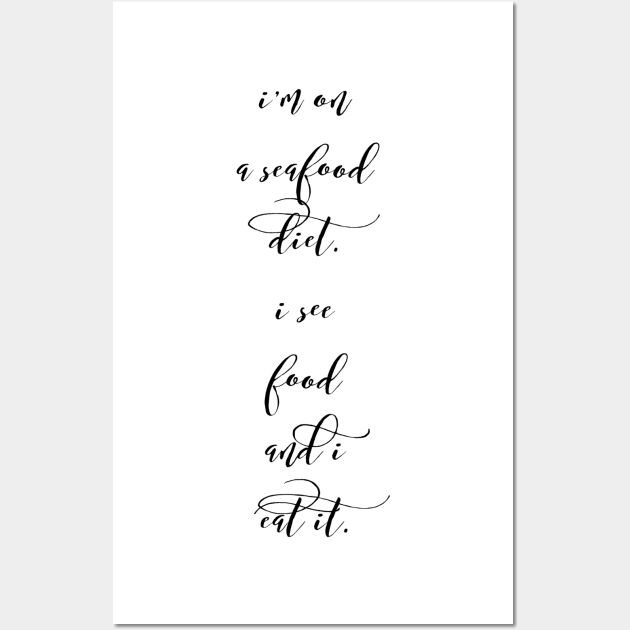 i'm on
a seafood
diet.
i see
food
and i
eat it.